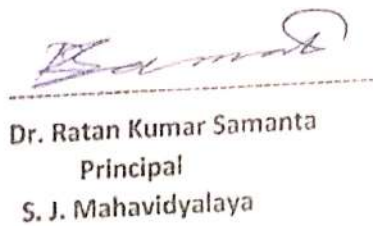 RSamanta
Dr. Ratan Kumar Samanta
Principal
S. J. Mahavidyalaya